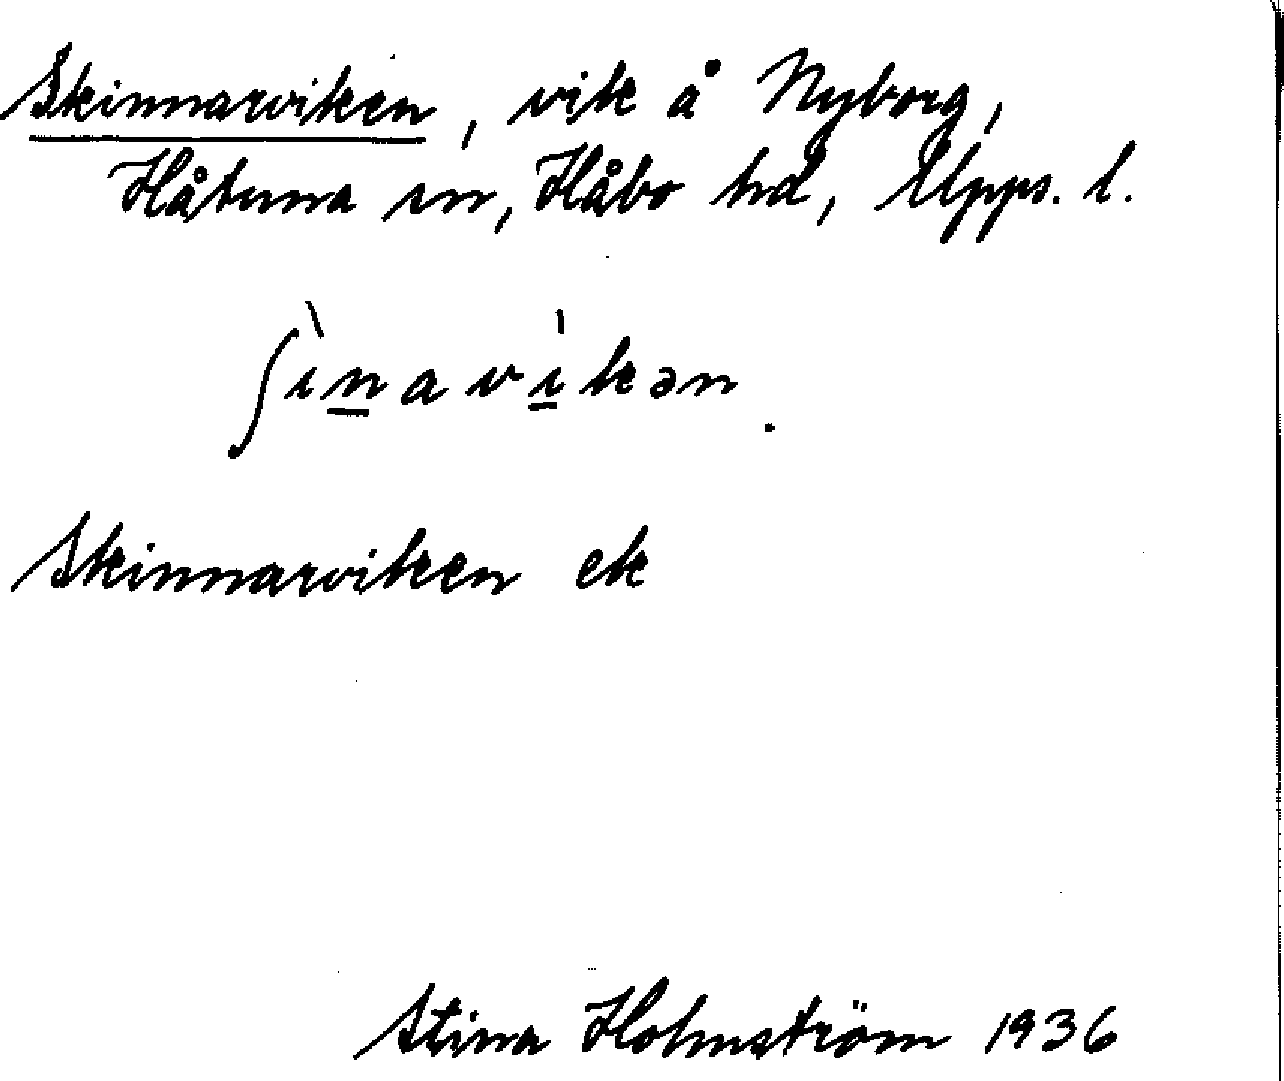 Skinnarviken, vik å Nyborg,
Håtuna sn, Håbo hd, Upps. l.
ʃìn̲avi̲̍kən.
Skinnarviken ek
Stina Holmström 1936